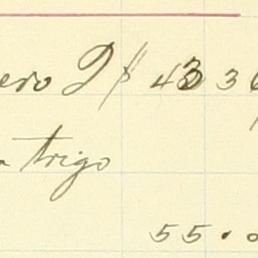 ero 2 $ 43 36
trigo
55.0